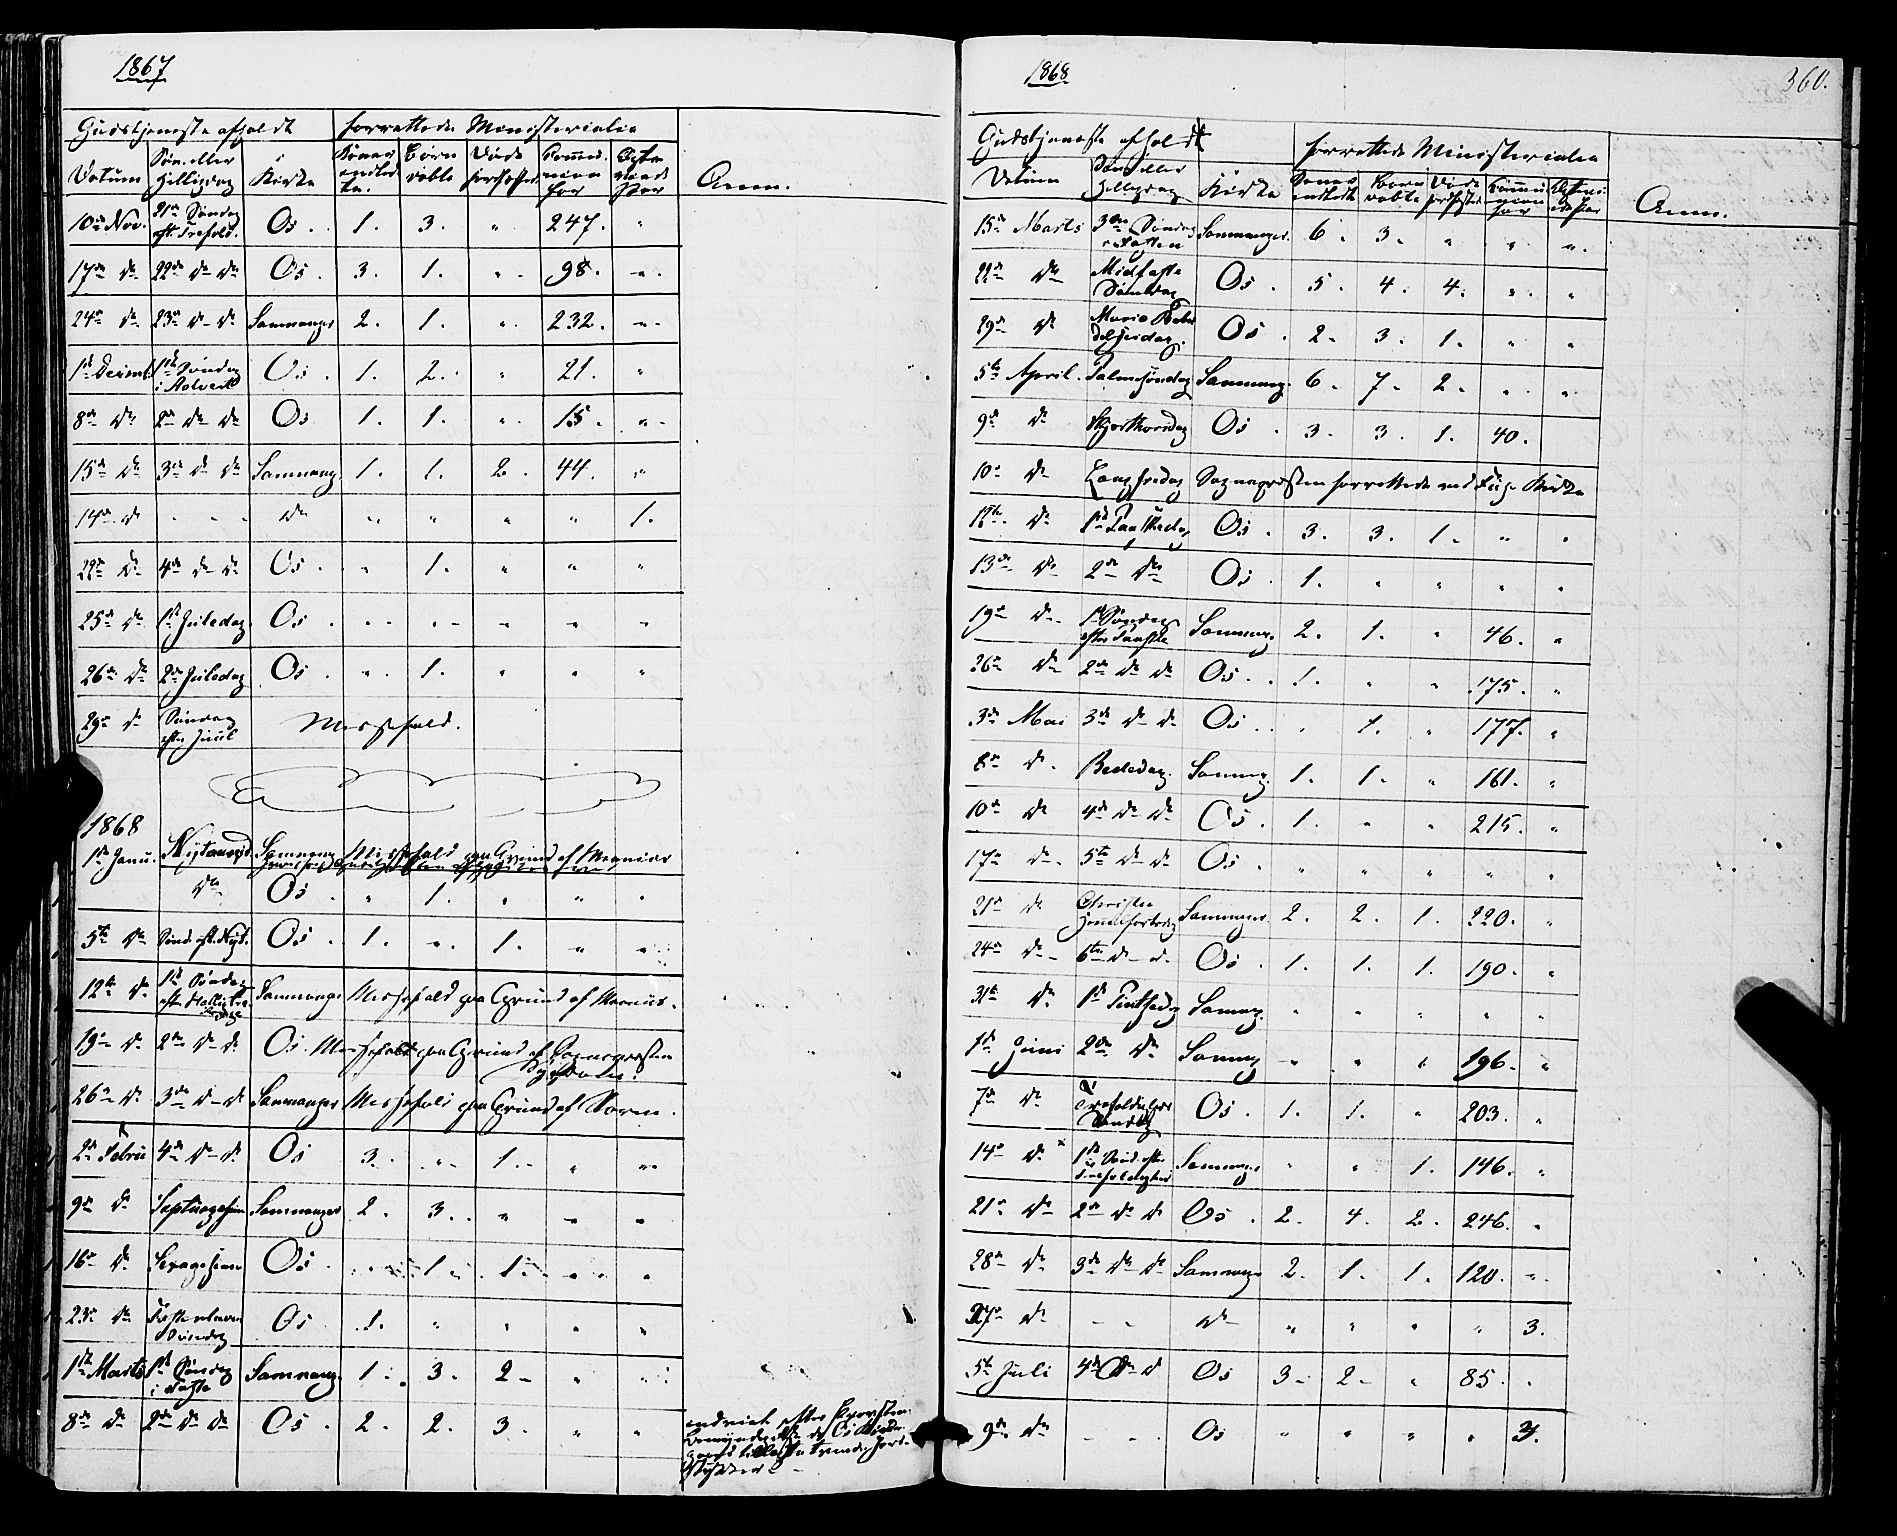 1867
Gudstjeneste afholdt forrettede Ministerialia
Datum Søn. eller Helligdag Kirke Koner indledte. Børn døbte Døde Commu- nion for Anm.
10de Nov. 21de Søndag eft. Trefold. Os. 1. 3. " 247. "
17de do 22de do do Os. 3. 1. " 98. "
24de do 23de do do Samnanger 2. 1. " 232. "
1ste Decembr 1ste Søndag i Advent Os. 1. 2. " 21. "
8de do 2de do do Os 1. 1. " 15. "
15de do 3de do do Samnang. 1. 1. 2. 44. "
14de do " " do " " " " 1.
22de do 4de do do Os. " 1. " " "
25de do 1ste Juledag Os. " " " " "
26de do 2den Juledag Os. " 1. " " "
29de do Søndag efter Juul Messefald.
1868
1ste Janu. Nytaarsd. Samnang Messefald paa Grund af
do Os " 1. " " "
5te do Sønd. eft. Nyt. Os. 1. " 1. " "
12te do 1ste Søndag eft. Hellig tre Konge Samnanger Messefald paa Grund af
19de do 2den do do Os. Messefald paa Grund af Sognepræsten Sygdom.
26de do 3die do do Samnanger Messefald paa Grund af Storm.
2den Febru 4de do do Os 3. " 1. " "
9de do Septuagesim Samnanger 2. 3. " " "
16de do Sexagesima Os. " 1. 1. " "
23de do Fastelavns Søndag Os 1. " " " "
1ste Marts 1ste Søndag i Faste Samnang. 1. 3. 2. " "
8de do 2den do do Os. 2. 2. 3. " "
1868
360.
Gudstjeneste afholdt forrettede Ministerialia
Datum Søn eller Helligdag Kirke Koner indledte Børn døbte Døde Commu- nion for Anm.
15de Marts 3die Søndag i Fasten Samnanger. 6. 3. " " "
22de do Midfaste Søndag Os. 5. 4. 4. " "
29de do Maria Bebudelsesdag. Os. 2. 3. 1. " "
5te April. Palmesøndag Samnang. 6. 7. 2. " "
9de do Skjærthorsdag Os. 3. 3. 1. 40.
10de do Langfredag Sognepræsten forrettede ved Fuse Kirke
12te do 1ste Paaskedag Os. 3. 3. 1. " "
13de do 2den do Os. 1. " " " "
19de do 1ste Søndag efter Paaske Samnang. 2. 1. " 46. "
26de do 2den do do Os. 1. " " 175. "
3die Mai 3die do do Os. " 1. " 177. "
8de do Bededag. Samnag. 1. 1. " 161. "
10de do 4de do do Os. 1. " " 215. "
17de do 5te do do Os. " " " " "
21de do Christi Himmelfartsdag Samnanger. 2. 2. 1. 220. "
24de do 6te do do Os. 1. 1. 1. 190. "
31te do 1ste Pintsedag Samnag. " " " " "
1ste Juni 2den do Samnag " " " 196. "
7de do Trefoldigheds Søndag Os. 1. 1. " 203. "
14de do 1ste Sønd. efter Trefoldighed Samnang. " " 1. 146. "
21de do 2den do do Os. 2. 4. 2. 246. "
28de do 3die do do Samnang. 2. 1. 1. 120. "
27de do " " do " " " " 3.
5te Juli 4de do do Os 3. 2. " 85. "
9de do " " Os " " " " 3.